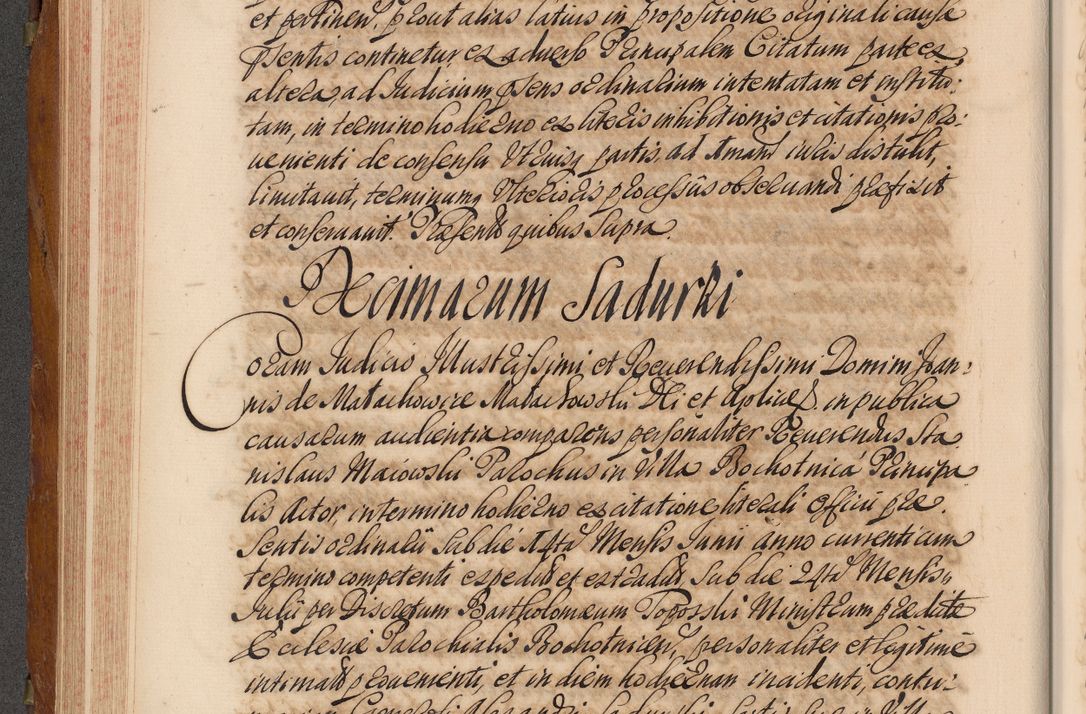 et pertinen̄, prout alias latius in propositione originali causæ
pſentis continetur ex adverso Principalem Citatum parte ex
altera, ad Judicium pſens ordinarium intentatam et institu:
tam, in termino hodierno ex literis inhibitionis et citationis pro:
uenienti de consensu Utriusq partis, ad distulit,
limitauit, terminumq Ulterioris processûs obseruandi præfixit
et conseruauit. Præsentb quibus Supra.
Decimarum Sadurki
Coram Judicio Illustrissimi et Reuerendissimi Domini Joan:
nis de Małachowice Małachowski Dei et Aplicæ in publica
causarum audientia comparens personaliter Reuerendus Sta
nislaus Maiowski Parochus in Villa Bochotnica Principa
lis Actor, in termino hodierno ex citatione literali Officii præ.
Sentis ordinarii Sub die 14ta Mensis Junii anno currenti cum
termino competenti expedit et extradit, Sub die 24ta Mensis
Julii per Discretum Bartholomæum Toporski Ministrum prædictæ
Ecclesiæ Parochialis Bochotnicen̄, personaliter et legitimè
intimat prouenienti, et in diem hodiernam incidenti, contu: